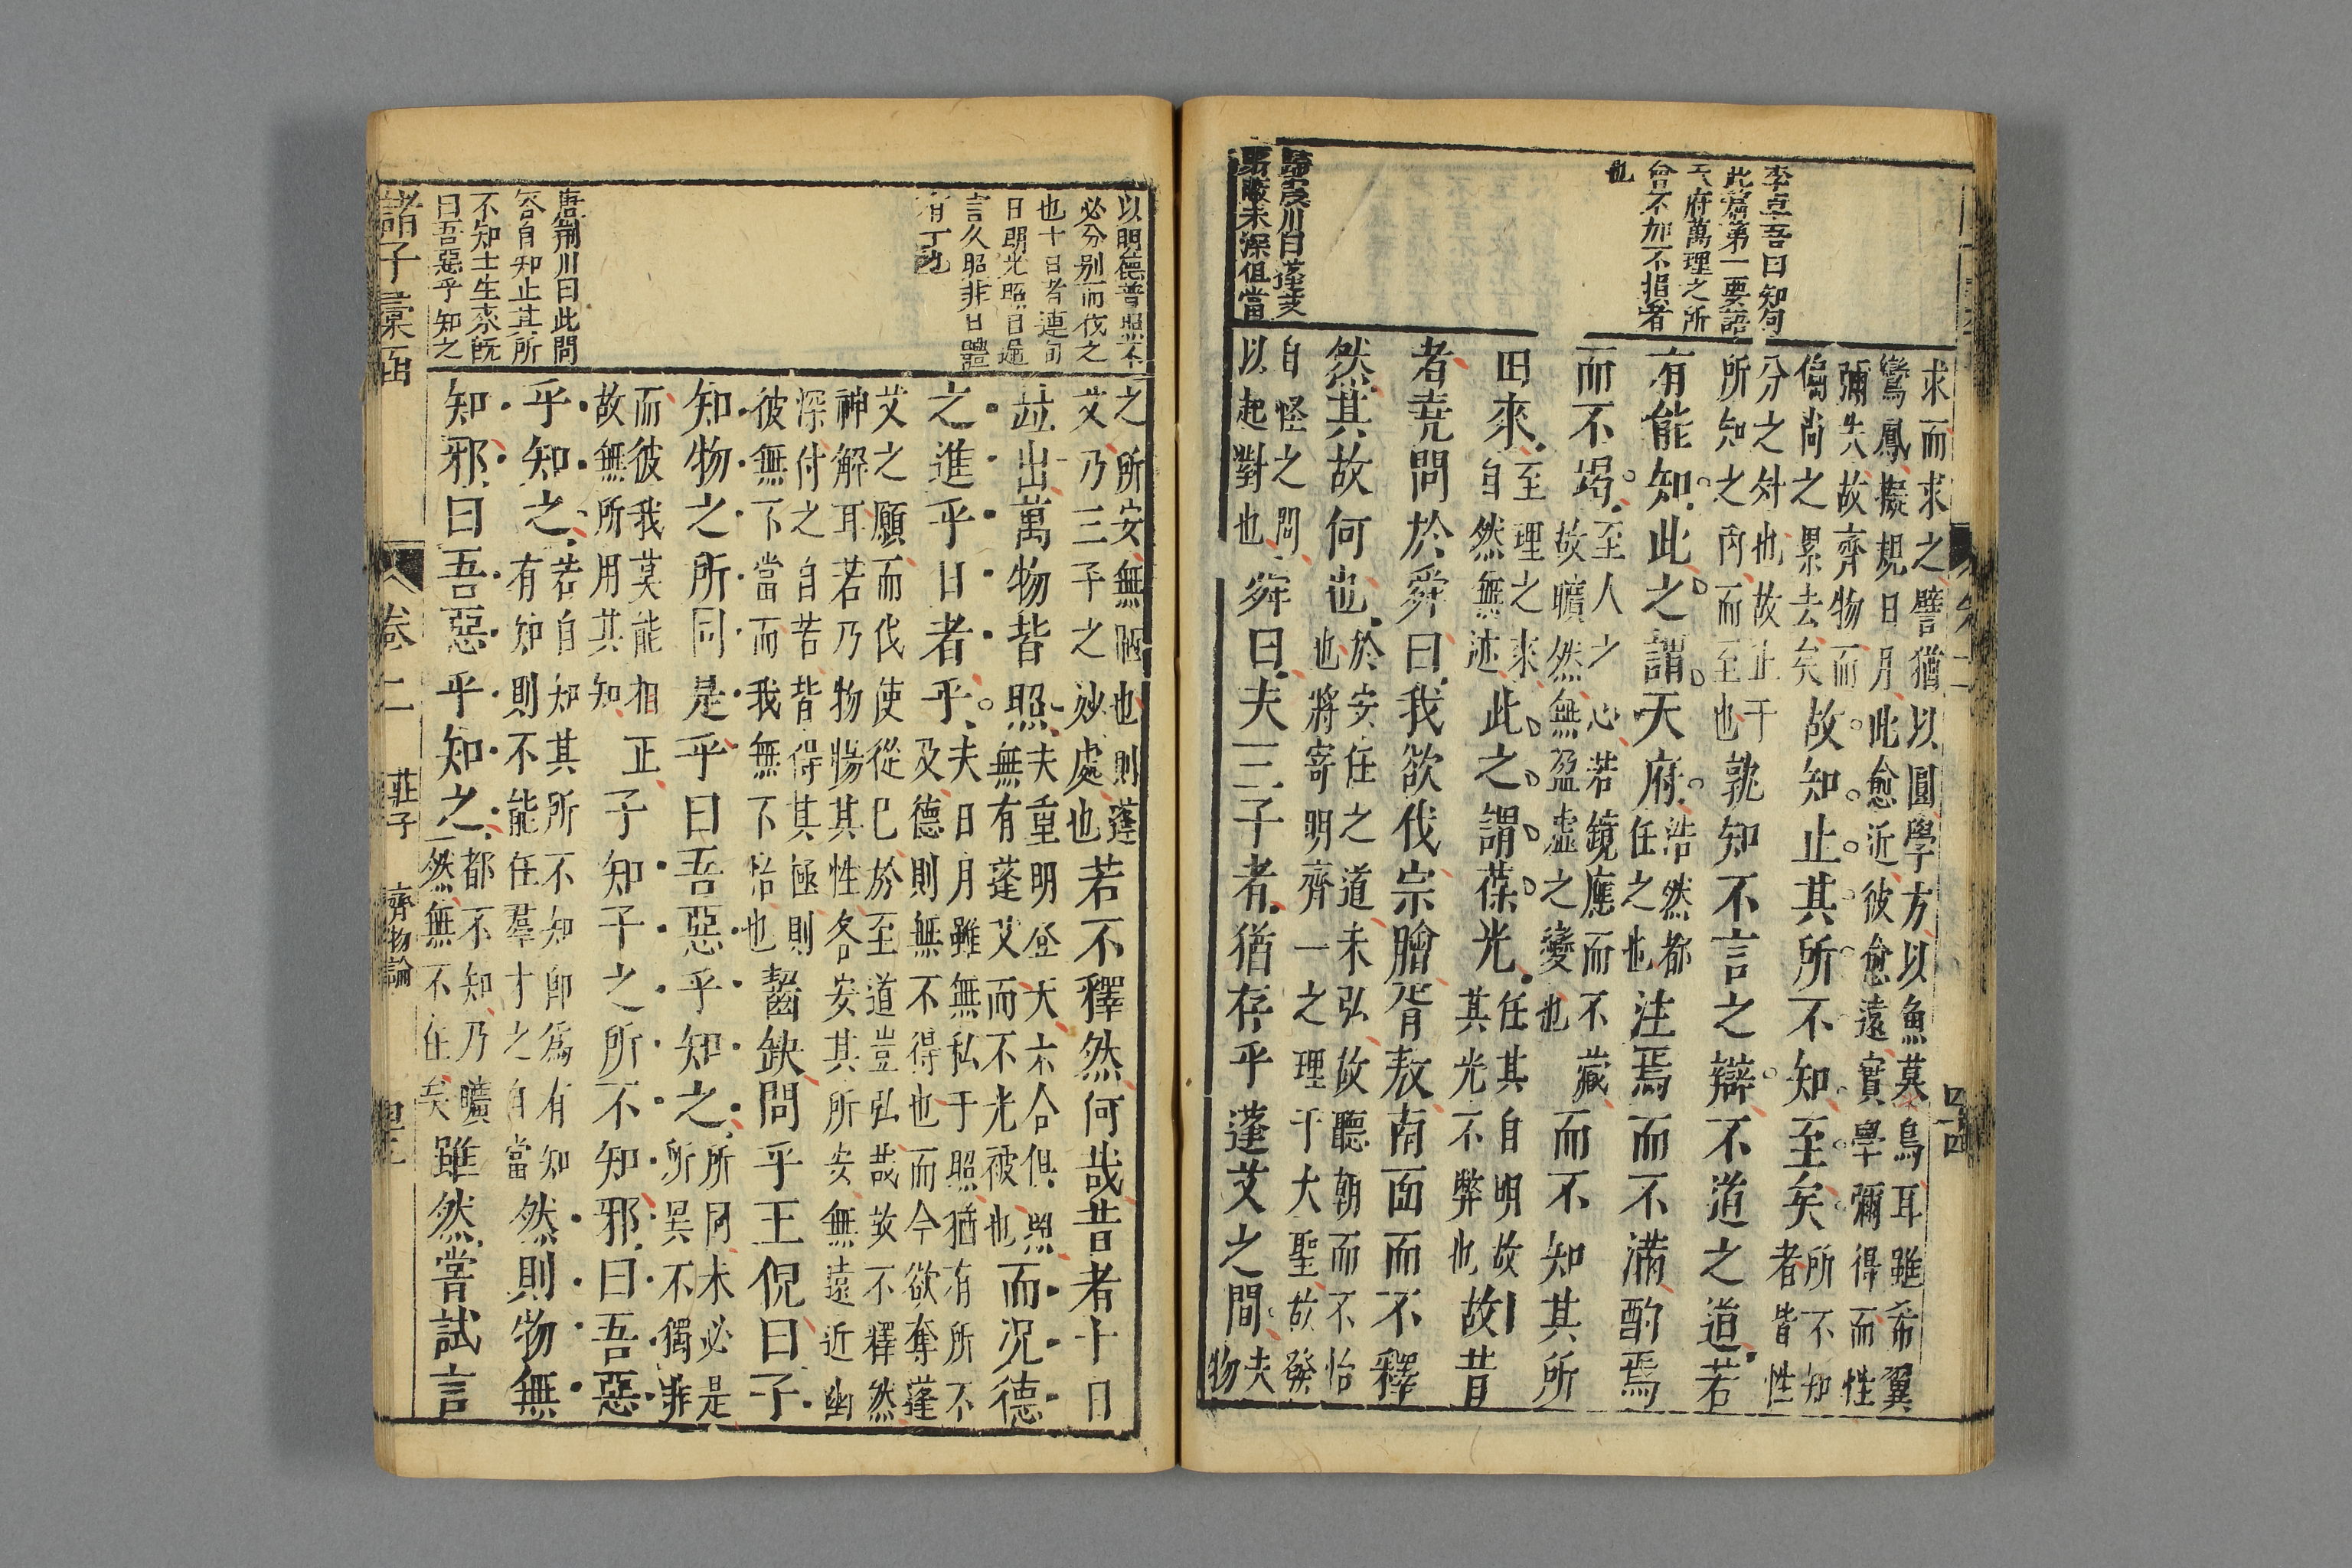 李卓吾曰知句
此篇第一要語
天府萬理之所
會不加不損者
也
曰蓬艾
蔽未深但當
求而求之譬猶以圓學方以魚慕鳥耳雖希翼
鸞鳳擬規日月此愈近彼愈遠實學彌得而性
彌失故齊物而
偏尚之累去矣
故知止其所不知至矣
所不知
者皆性
分之外也故止于
所知之內而至也
孰知不言之辯不道之道若
有能知此之謂天府
浩然都
任之也
注焉而不滿酌焉
而不竭
至人之心若鏡應而不藏
故曠然無盈虛之變也
而不知其所
由來
至理之來
自然無迹
此之謂葆光
任其自明故
其光不弊也
故昔
者堯問於舜曰我欲伐宗膾胥敖南面而不釋
然其故何也
於安任之道未弘故聽朝而不怡
也將寄明齊一之理于大聖故發
自怪之問
以起對也
舜曰夫三子者猶存乎蓬艾之間
夫
物
以明德普照不
必分別而伐之
也十日者連旬
日明光照日通
言久照非日體
有十也
之所安無陋也則蓬
艾乃三子之妙處也
若不釋然何哉昔者十日
竝出萬物皆照
夫重明登天六合俱照
無有蓬艾而不光被也
而況德
之進乎日者乎
夫日月雖無私于照猶有所不
及德則無不得也而今欲奪蓬
艾之願而伐使從已於至道豈弘哉故不釋然
神解耳若乃物暢其性各安其所安無遠近幽
深付之自若皆得其極則
彼無不當而我無不怡也
齧缺問乎王倪曰子
知物之所同是乎曰吾惡乎知之
所同未必是
所異不獨非
而彼我莫能相正
故無所用其知
子知子之所不知邪曰吾惡
乎知之
若自知其所不知卽爲有知
有知則不能任羣才之自當
然則物無
知邪曰吾惡乎知之
都不知乃曠
然無不任矣
雖然嘗試言
唐荊川曰此問
答自知止其所
不知上生來既
曰吾惡乎知之
諸子彙函
卷二
莊子
齊物論